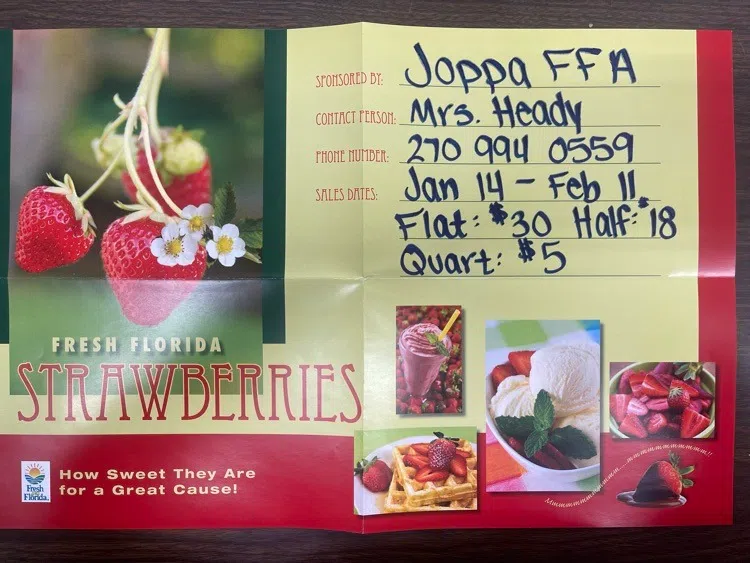 SPONSORED BY: Joppa FFA
CONTACT PERSON: Mrs. Heady
PHONE NUMBER: 270 994 0559
SALES DATES: Jan 14 - Feb 11
Flat: $30 Half: $18
Quart: $5
FRESH FLORIDA
STRAWBERRIES
How Sweet They Are
for a Great Cause!
Fresh
from
Florida